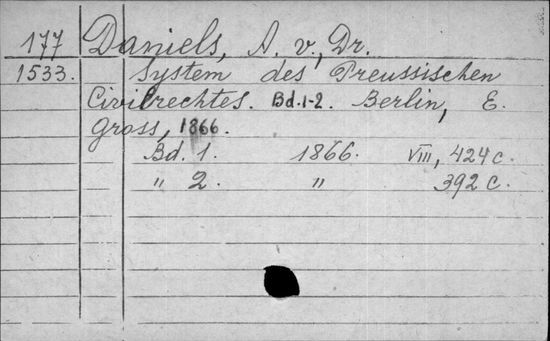 177 Daniels, A. v., Dr.
1533. System des Preussischen
Civilrechtes. Bd. 1-2. Berlin, E.
Gross, 1866.
Bd. 1. 1866. VIII, 424 c.
" 2. " 392 c.